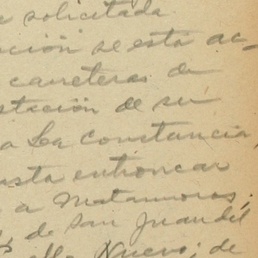 solicitada
ción se está ac-
carreteras de
stación de ser
a La Constancia,
asta entroncar
a Matamoros;
de San Juan del
Nuevo; de